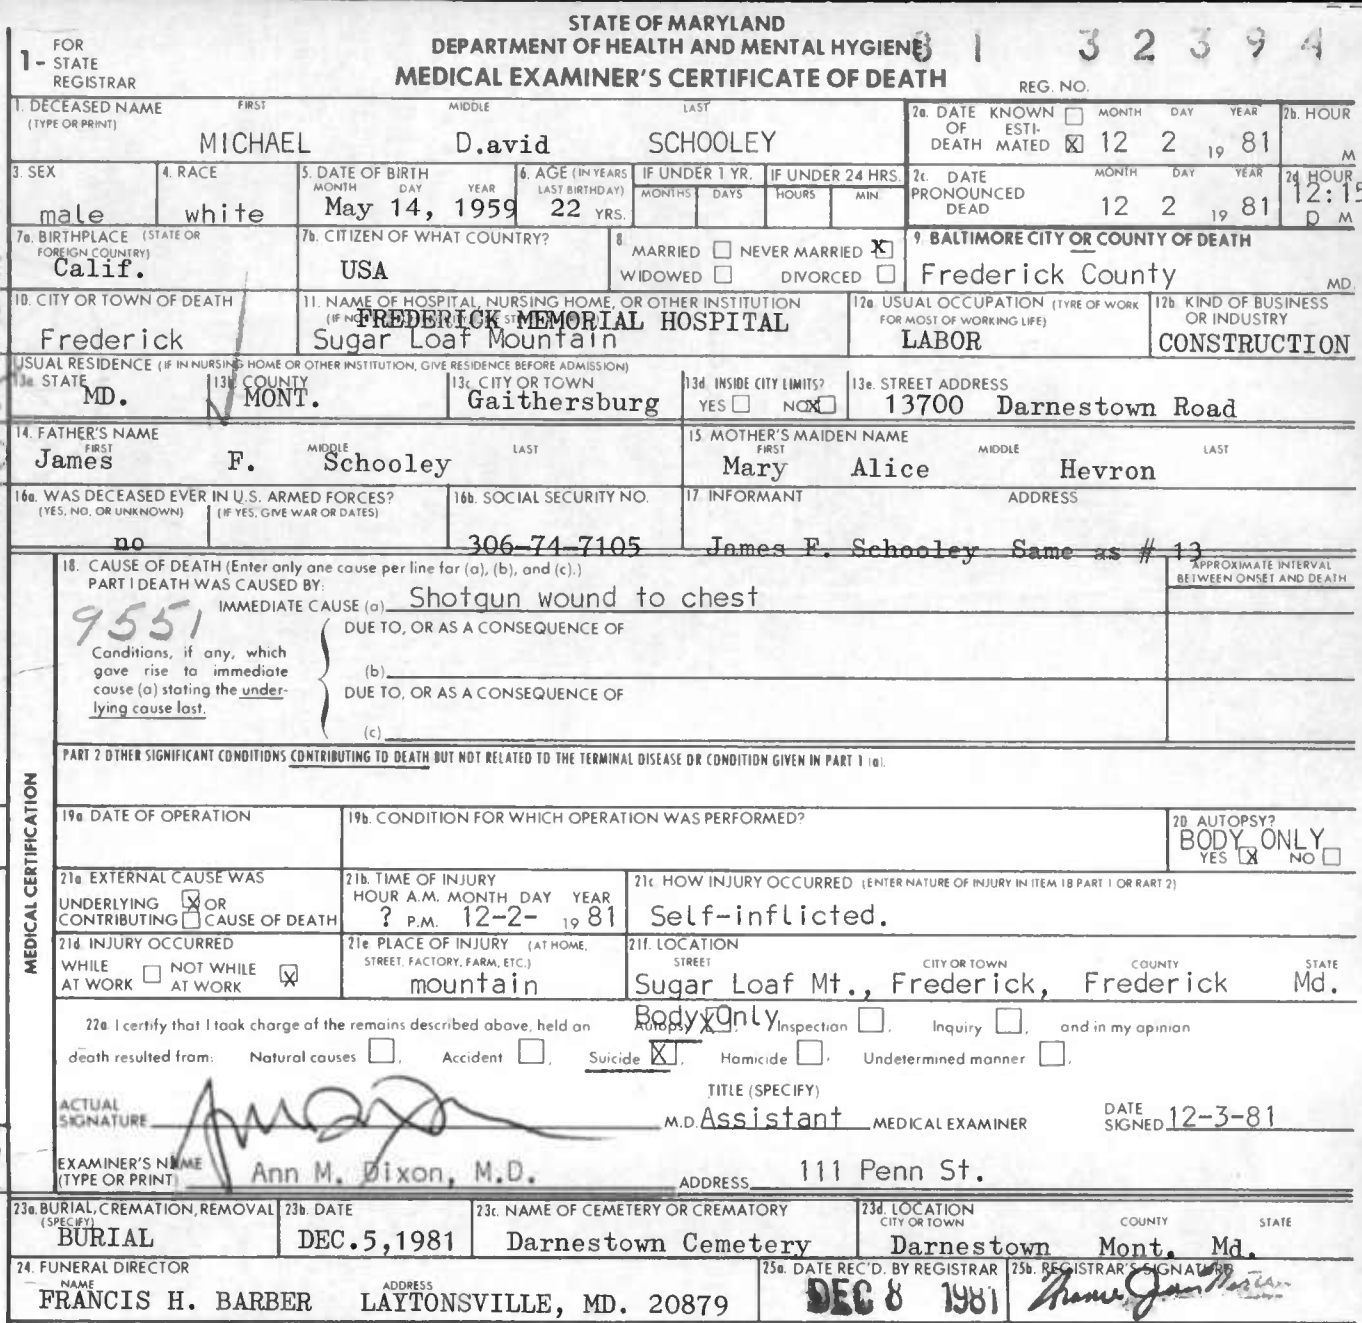 STATE OF MARYLAND
DEPARTMENT OF HEALTH AND MENTAL HYGIENE
MEDICAL EXAMINER'S CERTIFICATE OF DEATH
1 - FOR STATE REGISTRAR
81 32394
REG. NO.
1. DECEASED NAME (TYPE OR PRINT) FIRST MIDDLE LAST
MICHAEL D.avid SCHOOLEY
2a. DATE OF DEATH KNOWN ☐ ESTIMATED ☒ MONTH DAY YEAR
12 2 19 81
2b. HOUR
M
3. SEX
male
4. RACE
white
5. DATE OF BIRTH MONTH DAY YEAR
May 14, 1959
6. AGE (IN YEARS LAST BIRTHDAY)
22 YRS.
IF UNDER 1 YR. MONTHS DAYS
IF UNDER 24 HRS. HOURS MIN.
2c. DATE PRONOUNCED DEAD MONTH DAY YEAR
12 2 19 81
2d. HOUR
12:15
P M
7a. BIRTHPLACE (STATE OR FOREIGN COUNTRY)
Calif.
7b. CITIZEN OF WHAT COUNTRY?
USA
8. MARRIED ☐ NEVER MARRIED ☒
WIDOWED ☐ DIVORCED ☐
9. BALTIMORE CITY OR COUNTY OF DEATH
Frederick County MD.
10. CITY OR TOWN OF DEATH
Frederick
11. NAME OF HOSPITAL, NURSING HOME, OR OTHER INSTITUTION
FREDERICK MEMORIAL HOSPITAL
Sugar Loaf Mountain
12a. USUAL OCCUPATION (TYPE OF WORK FOR MOST OF WORKING LIFE)
LABOR
12b. KIND OF BUSINESS OR INDUSTRY
CONSTRUCTION
USUAL RESIDENCE (IF IN NURSING HOME OR OTHER INSTITUTION, GIVE RESIDENCE BEFORE ADMISSION)
13a. STATE
MD.
13b. COUNTY
MONT.
13c. CITY OR TOWN
Gaithersburg
13d. INSIDE CITY LIMITS?
YES ☐ NO ☒
13e. STREET ADDRESS
13700 Darnestown Road
14. FATHER'S NAME FIRST MIDDLE LAST
James F. Schooley
15. MOTHER'S MAIDEN NAME FIRST MIDDLE LAST
Mary Alice Hevron
16a. WAS DECEASED EVER IN U.S. ARMED FORCES?
(YES, NO, OR UNKNOWN) (IF YES, GIVE WAR OR DATES)
no
16b. SOCIAL SECURITY NO.
306-74-7105
17. INFORMANT ADDRESS
James F. Schooley Same as # 13
MEDICAL CERTIFICATION
18. CAUSE OF DEATH (Enter only one cause per line for (a), (b), and (c).)
APPROXIMATE INTERVAL BETWEEN ONSET AND DEATH
PART I DEATH WAS CAUSED BY:
IMMEDIATE CAUSE (a) Shotgun wound to chest
9551
DUE TO, OR AS A CONSEQUENCE OF
Conditions, if any, which gave rise to immediate cause (a) stating the underlying cause last.
(b)
DUE TO, OR AS A CONSEQUENCE OF
(c)
PART 2 OTHER SIGNIFICANT CONDITIONS CONTRIBUTING TO DEATH BUT NOT RELATED TO THE TERMINAL DISEASE OR CONDITION GIVEN IN PART 1 (a).
19a. DATE OF OPERATION
19b. CONDITION FOR WHICH OPERATION WAS PERFORMED?
20. AUTOPSY?
BODY ONLY
YES ☒ NO ☐
21a. EXTERNAL CAUSE WAS
UNDERLYING ☒ OR
CONTRIBUTING ☐ CAUSE OF DEATH
21b. TIME OF INJURY
HOUR A.M. MONTH DAY YEAR
? P.M. 12-2- 19 81
21c. HOW INJURY OCCURRED (ENTER NATURE OF INJURY IN ITEM 18 PART 1 OR PART 2)
Self-inflicted.
21d. INJURY OCCURRED
WHILE AT WORK ☐ NOT WHILE AT WORK ☒
21e. PLACE OF INJURY (AT HOME, STREET, FACTORY, FARM, ETC.)
mountain
21f. LOCATION
STREET CITY OR TOWN COUNTY STATE
Sugar Loaf Mt., Frederick, Frederick Md.
Body Only
22a. I certify that I took charge of the remains described above, held an Autopsy ☒, Inspection ☐, Inquiry ☐, and in my opinion
death resulted from: Natural causes ☐, Accident ☐, Suicide ☒, Homicide ☐, Undetermined manner ☐.
ACTUAL SIGNATURE
TITLE (SPECIFY)
M.D. Assistant MEDICAL EXAMINER
DATE SIGNED 12-3-81
EXAMINER'S NAME (TYPE OR PRINT) Ann M. Dixon, M.D.
ADDRESS 111 Penn St.
23a. BURIAL, CREMATION, REMOVAL (SPECIFY)
BURIAL
23b. DATE
DEC.5,1981
23c. NAME OF CEMETERY OR CREMATORY
Darnestown Cemetery
23d. LOCATION
CITY OR TOWN COUNTY STATE
Darnestown Mont. Md.
24. FUNERAL DIRECTOR
NAME ADDRESS
FRANCIS H. BARBER LAYTONSVILLE, MD. 20879
25a. DATE REC'D. BY REGISTRAR
DEC 8 1981
25b. REGISTRAR'S SIGNATURE